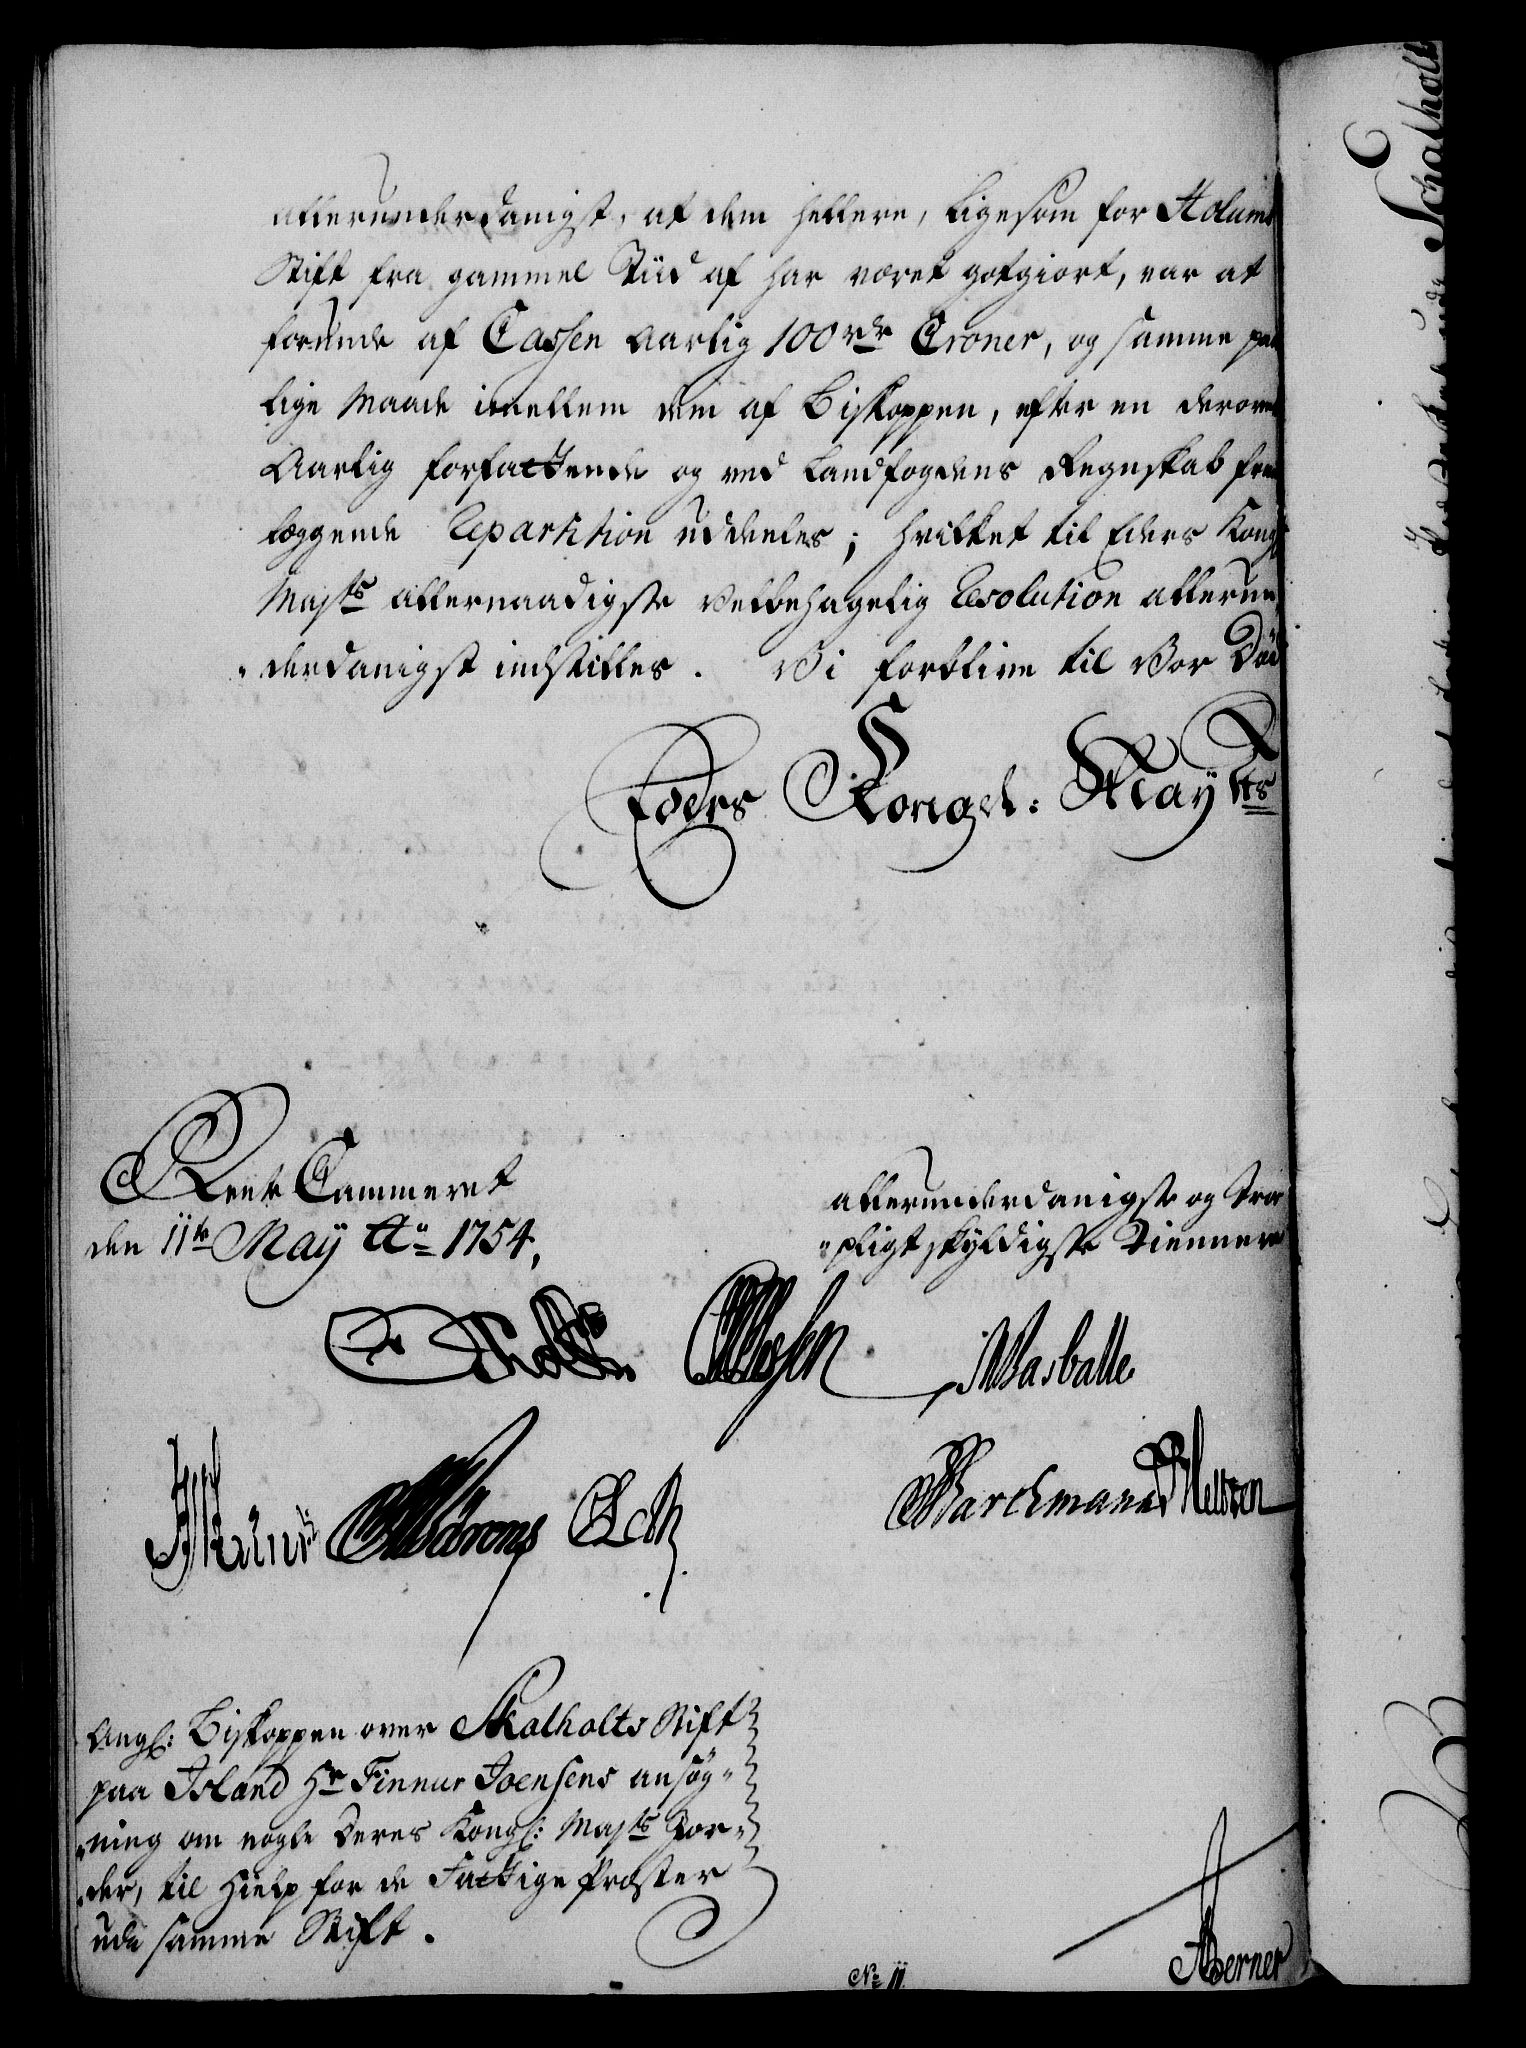 allerunderdanigst, at dem hellere, ligesom for Holums
Stift fra gammel Tiid af har været gotgiort, var at
forunde af Cassen Aarlig 100 rdr Croner, og samme paa
lige Maade imellem dem af Biskoppen, efter en derover
Aarlig forfattende og ved Landfogdens Regnskab frem
læggende Repartition uddeeles; hvilket til Eders Kongl
Majts allernaadigste Velbehagelig Resolution allerun
derdanigst indstilles. Vi forblive til Vor Död
Eders Kongel: Mayts
Rente Cammeret
den 11te Maÿ Ao 1754,
allerunderdanigste og Troe
pligtskyldigste Tiennere
Holst
JWasballe
Barchmann
Angl: Biskoppen over Skalholts Stift
paa Island Hr Finnur Joensens ansøg-
ning om nogle Deres Kongl: Majts Jor-
der, til Hielp for de Fattige Præster
udi samme Stift.
No 11.
Berner
Schalholt